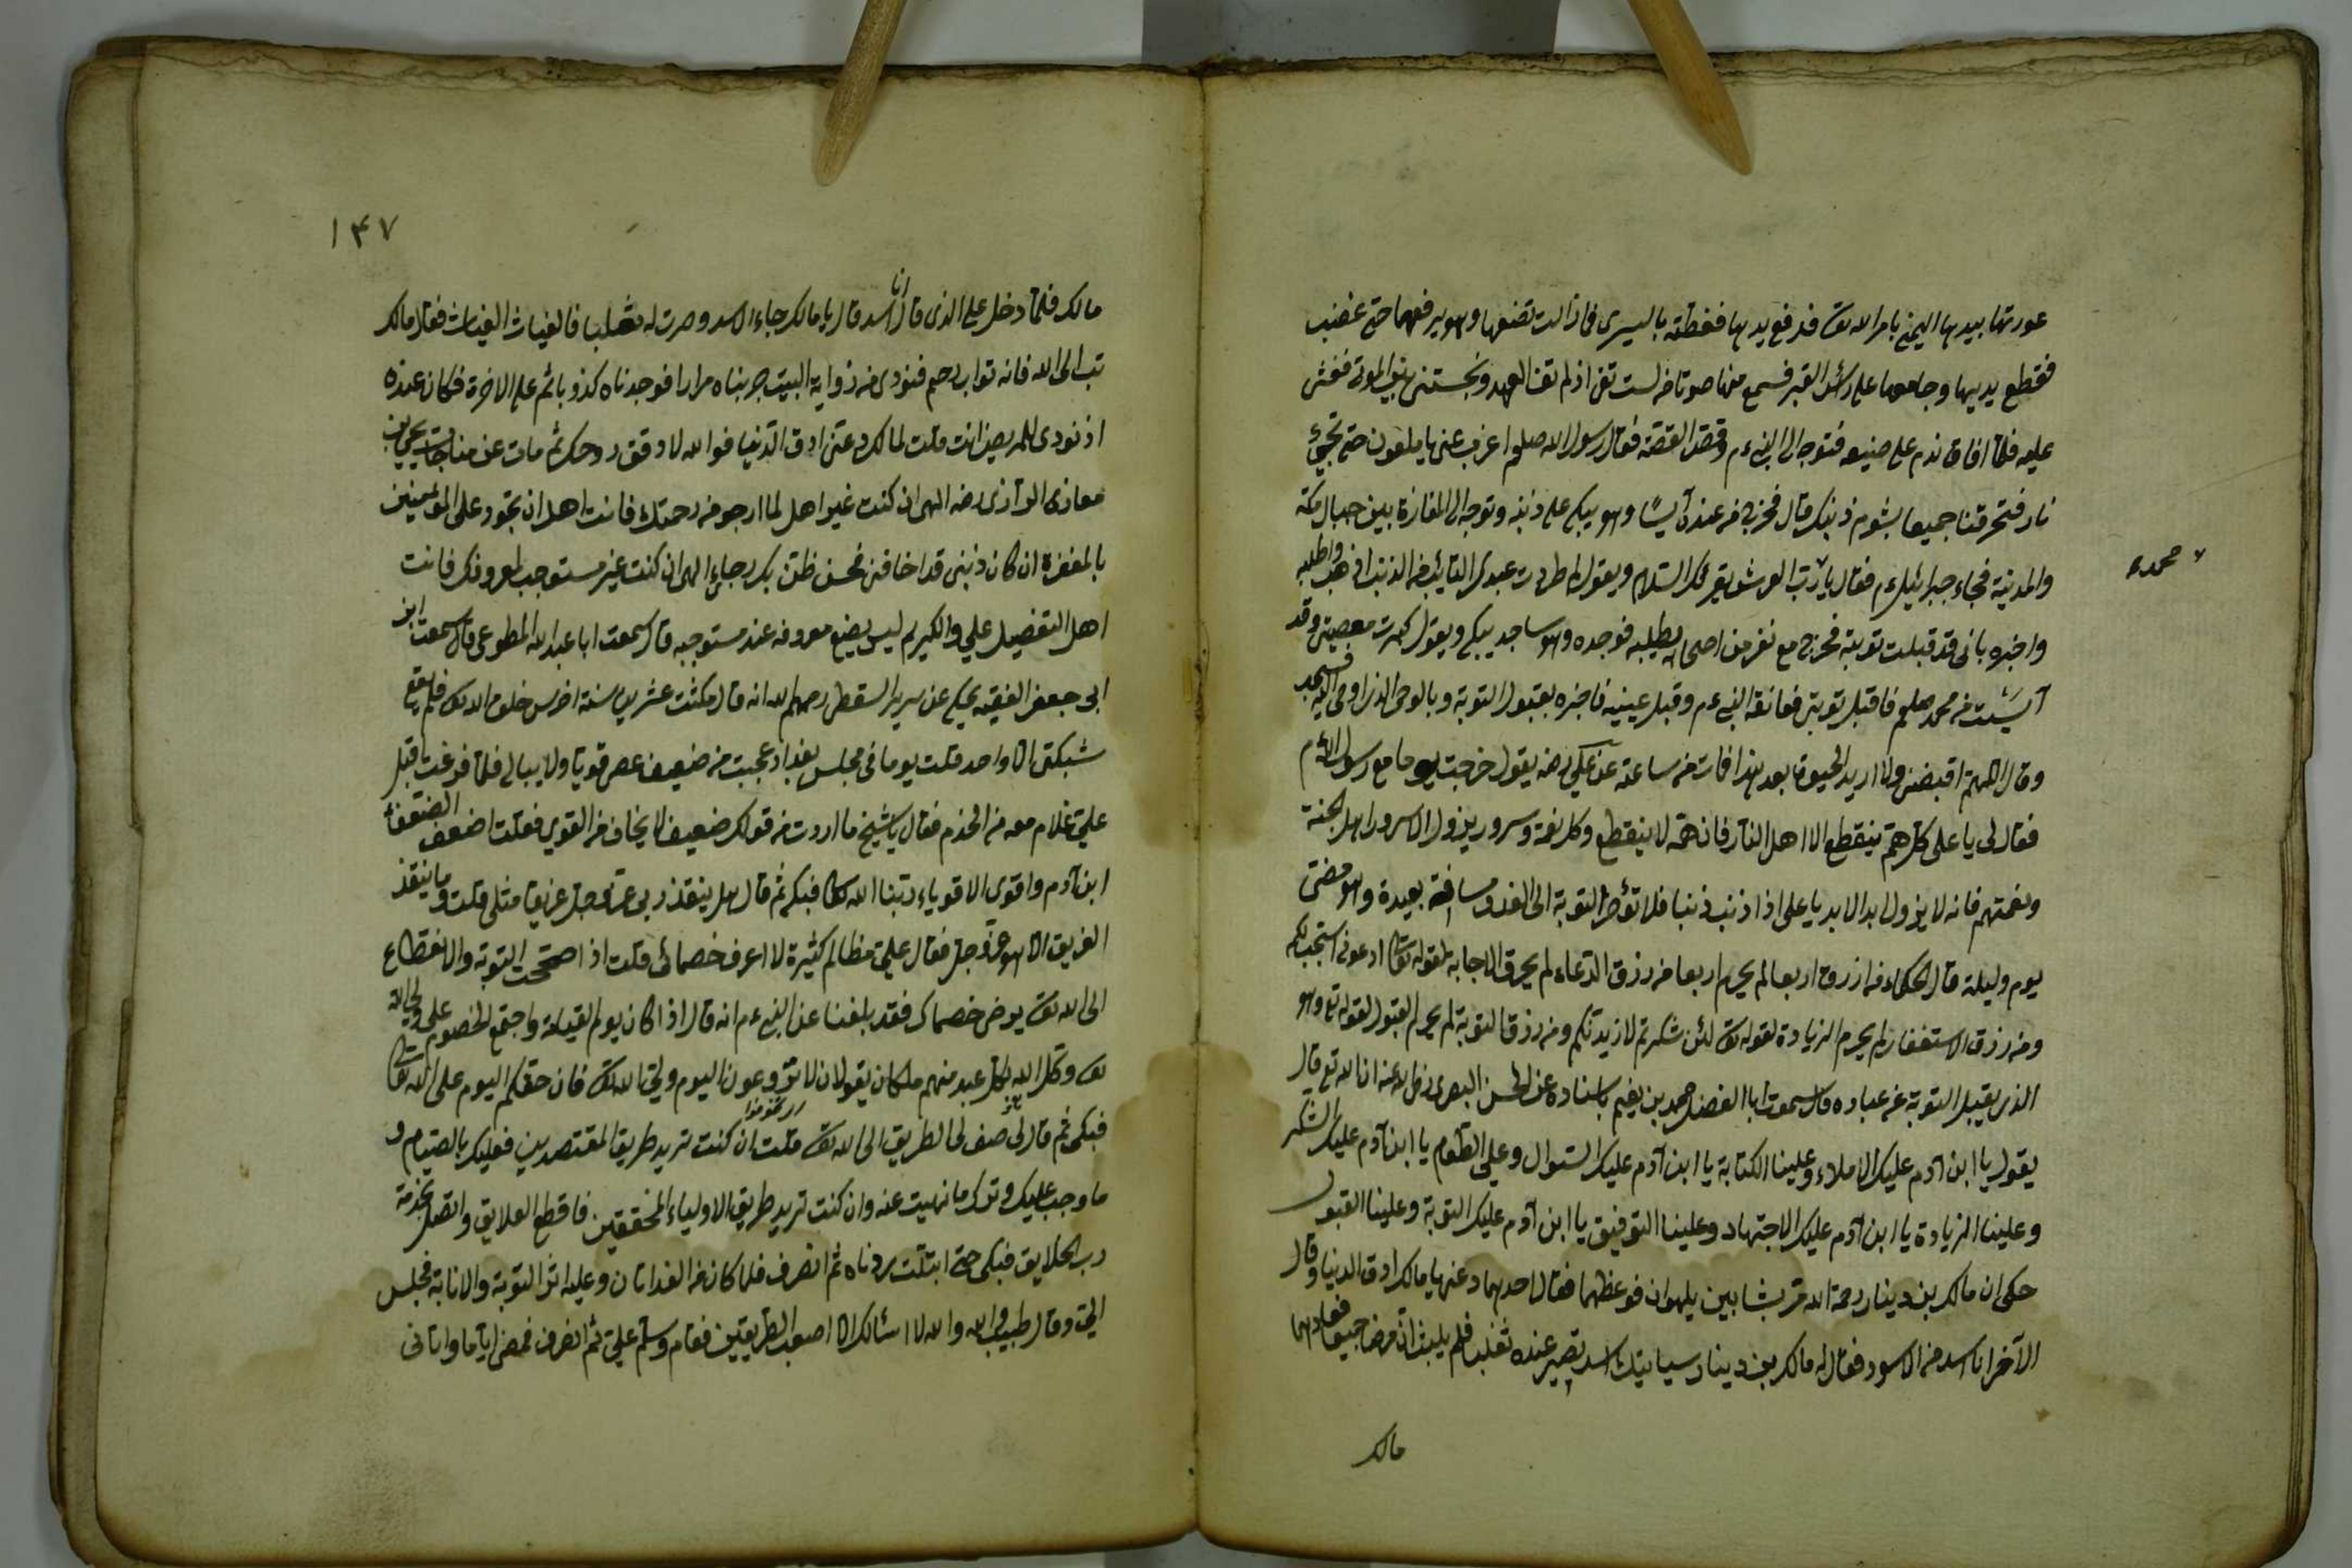 عورتها بيدها اليمنى بامر الله تع فدفع يديها فغطته باليسرى فما زالت تضعها وهو يرفعهما حتى غضب
فقطع يديها وجامعها على رأس القبر فسمع منها صوتا
عليه فلما افاق ندم على صنيعه فتوجه الى النبى ءم وقصّ القصّة فقال رسول الله صلعم اعزب عنى يا ملعون حتى تجئ
نار فتحرقنا جميعا بشوم ذنبك قال فخرج من عنده آيسًا وهو يبكى على ذنبه وتوجه الى المفازة بين جبال مكة
والمدينة فجاء جبرائيل ءم فقال يا ربّ العرش يقرئك السّلام ويقول لم طردت عبدى التائب من الذنب اذهب واطلبه
محمد ء
واخبره بانى قد قبلت توبته فخرج مع نفر من اصحابه يطلبه فوجده وهو ساجد يبكى ويقول كبرت معصيتى وقد
آيست من محمد صلعم فاقبل توبتى فعانقه النبى ءم وقبل عينيه فاخبره بقبول التوبة وبالوحى الذى اوحى اليه فسجد
وقال اللهمّ اقبضنى ولا اريد الحيوة بعد هذا فمات من ساعته عن على رضه يقول خرجت يوما مع رسول الله ءم
فقال لى يا على كل همّ ينقطع الا اهل النار فان همّه لا ينقطع وكل نعمة وسرور يزول الا سرور اهل الجنة
ونعمتهم فانه لا يزول ابد الابد يا على اذا اذنبت ذنبا فلا تؤخر التوبة الى الغد ومسافة بعيدة وهو مضىّ
يوم وليلة قال الحكماء من ازرق اربعا لم يحرم اربعا من رزق الدعاء لم يحرم الاجابة لقوله تعا ادعونى استجب لكم
ومن رزق الاستغفار لم يحرم الزيادة لقوله تع لئن شكرتم لازيدنّكم ومن رزق التوبة لم يحرم القبول لقوله تع وهو
الذى يقبل التوبة عن عباده قال سمعت ابا الفضل محمد بن نعيم باسناده عن الحسن البصرى رض الله عنه ان الله تع قال
يقول يا ابن آدم عليك الاملاء وعلينا الكتابة يا ابن آدم عليك السّوال وعلىّ الطّعام يا ابن آدم عليك الشكر
وعلينا الزيادة يا ابن آدم عليك الاجتهاد وعلينا التوفيق يا ابن آدم عليك التوبة وعلينا القبول
حكى ان مالك بن دينار رحمة الله مرّ بشابين يلهوان فوعظهما فقال احدهما دعنى يا مالك ادق الدنيا وقال
الآخر انا اسد من الاسود فقال له مالك بن دينار سياتيك اسد تصير عنده ثعلب فلم يلبث ان مرض جميعا فعادهما
مالك
١٤٧
مالك فلما دخل على الذى قال انا اسد قال يا مالك جاء الاسد وصرت له ثعلبا فالغياث الغياث فقال مالك
تب الى الله فانه تواب رحيم فنودى من زواية البيت جربناه مرارا فوجدناه كذوبا ثم على الاخر فكان عنده
اذ نودى للمريض انت قلت لمالك دعنى ادق الدّنيا فوالله لا وقق روحك ثم مات عن مناجات يحيى بن
معاذى الرازى رضه الهى ان كنت غير اهل لما ارجو من رحمتك فانت اهل ان تجود على المؤمنين
بالمغفرة ان كان ذنبى قد اخافنى فحسن ظنى بك رجائى الهى ان كنت غير مستوجب لمعروفك فانت
اهل التفضيل علي والكريم ليس يضيع معروفه عند مستوجبه قال سمعت ابا عبد الله المطوعى قال سمعت ابن
ابى جعفر الفقيه يحكى عن سرير السقطى رحمهم الله انه قال مكثت عشرين سنة اخرس خلق الله تع فلم يقع
شبكتى الا واحد قلت يوما فى مجلس بغداد عجبت من ضعيف عصى قويا ولا يبالى فلما فرغت اقبل
علىّ غلام معه من الخدم فقال يا شيخ ما اردت من قولك ضعيف لا يخاف من القوى فقلت اضعف الضعفاء
ابن آدم واقوى الاقوياء ربّنا الله تعا فبكى ثم قال هل ينقذ ربى عزّ وجلّ غريقا مثلى قلت وما ينقذ
الغريق الا هو عزّ وجلّ فقال علىّ مظالم كثيرة لا اعرف خصمائى قلت اذا صحّحت التوبة والانقطاع
الى الله تع يرض خصماك فقد بلغنا عن النبى ءم انه قال اذا كان يوم القيمة واجتمع الخصوم على ولى الله
تع وكل الله لكل عبد منهم ملكان يقولان لا تروعون اليوم ولىّ الله تع فان حقكم اليوم على الله تعا
فبكى ثم قال لى صف لى الطريق الى الله تع قلت ان كنت تريد طريق المقتصدين فعليك بالصيام و
ما وجب عليك وترك ما نهيت عنه وان كنت تريد طريق الاولياء المحققين فاقطع العلايق واتصل بخدمة
رب الخلايق فبكى حتى ابتلّت رداه ثم انصرف فلما كان من الغد اتان وعليه اثر التوبة والانابة فجلس
الىّ وقال طبيب والله لا اسئلك الا اصعب الطريقين فقام وسلّم علىّ ثم انصرف فمضى اياما واتانى